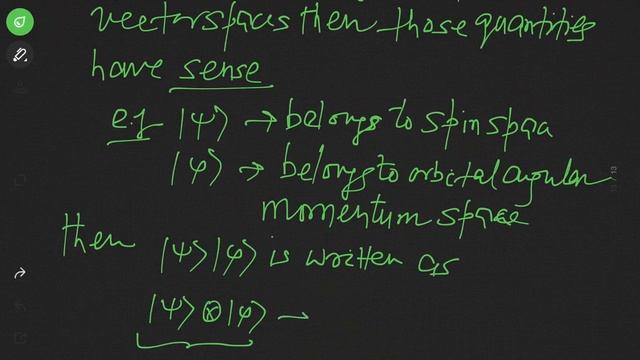 vectorspaces then those quantities
have sense
e.g |ψ⟩ → belongs to spin space
|φ⟩ → belongs to orbital angular
momentum space
then |ψ⟩|φ⟩ is written as
|ψ⟩⊗|φ⟩ →